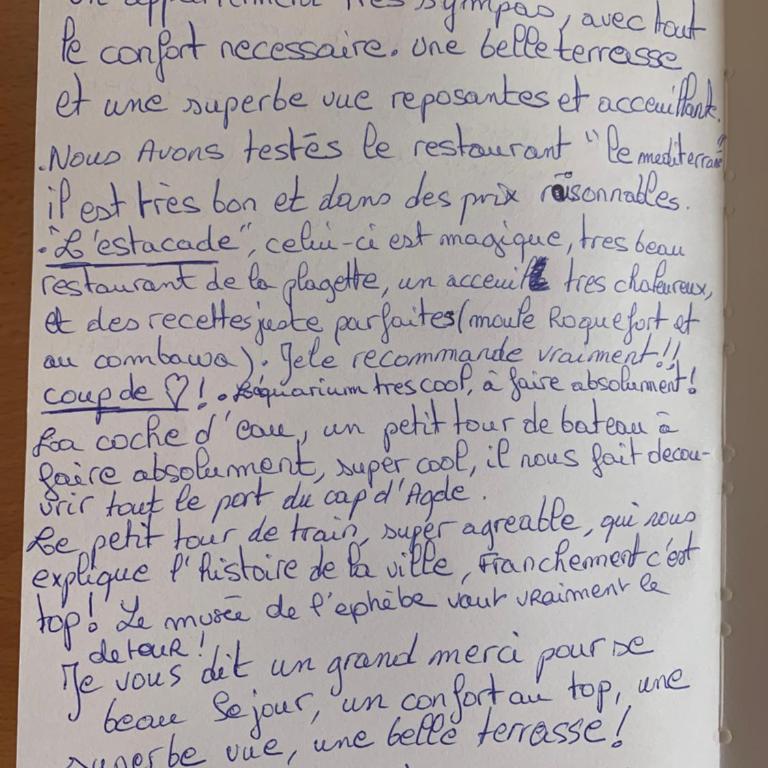 un appartement très sympas, avec tout
le confort necessaire. une belle terrasse
et une superbe vue reposantes et acceuillante.
. Nous Avons testés le restaurant "le mediterrané"
il est très bon et dans des prix raisonnables.
. "L'estacade", celui-ci est magique, tres beau
restaurant de la plagette, un acceuil tres chaleureux,
et des recettes juste parfaites (moule Roquefort et
au combawa). Je le recommande vraiment!!
coup de ♡! . L'aquarium tres cool, à faire absolument!
La coche d'eau, un petit tour de bateau à
faire absolument, super cool, il nous fait decou-
vrir tout le port du cap d'Agde.
Le petit tour de train, super agreable, qui nous
explique l'histoire de la ville, Franchement c'est
top! Le musée de l'ephèbe vaut vraiment le
detour!
Je vous dit un grand merci pour se
beau Sejour, un confort au top, une
superbe vue, une belle terrasse!